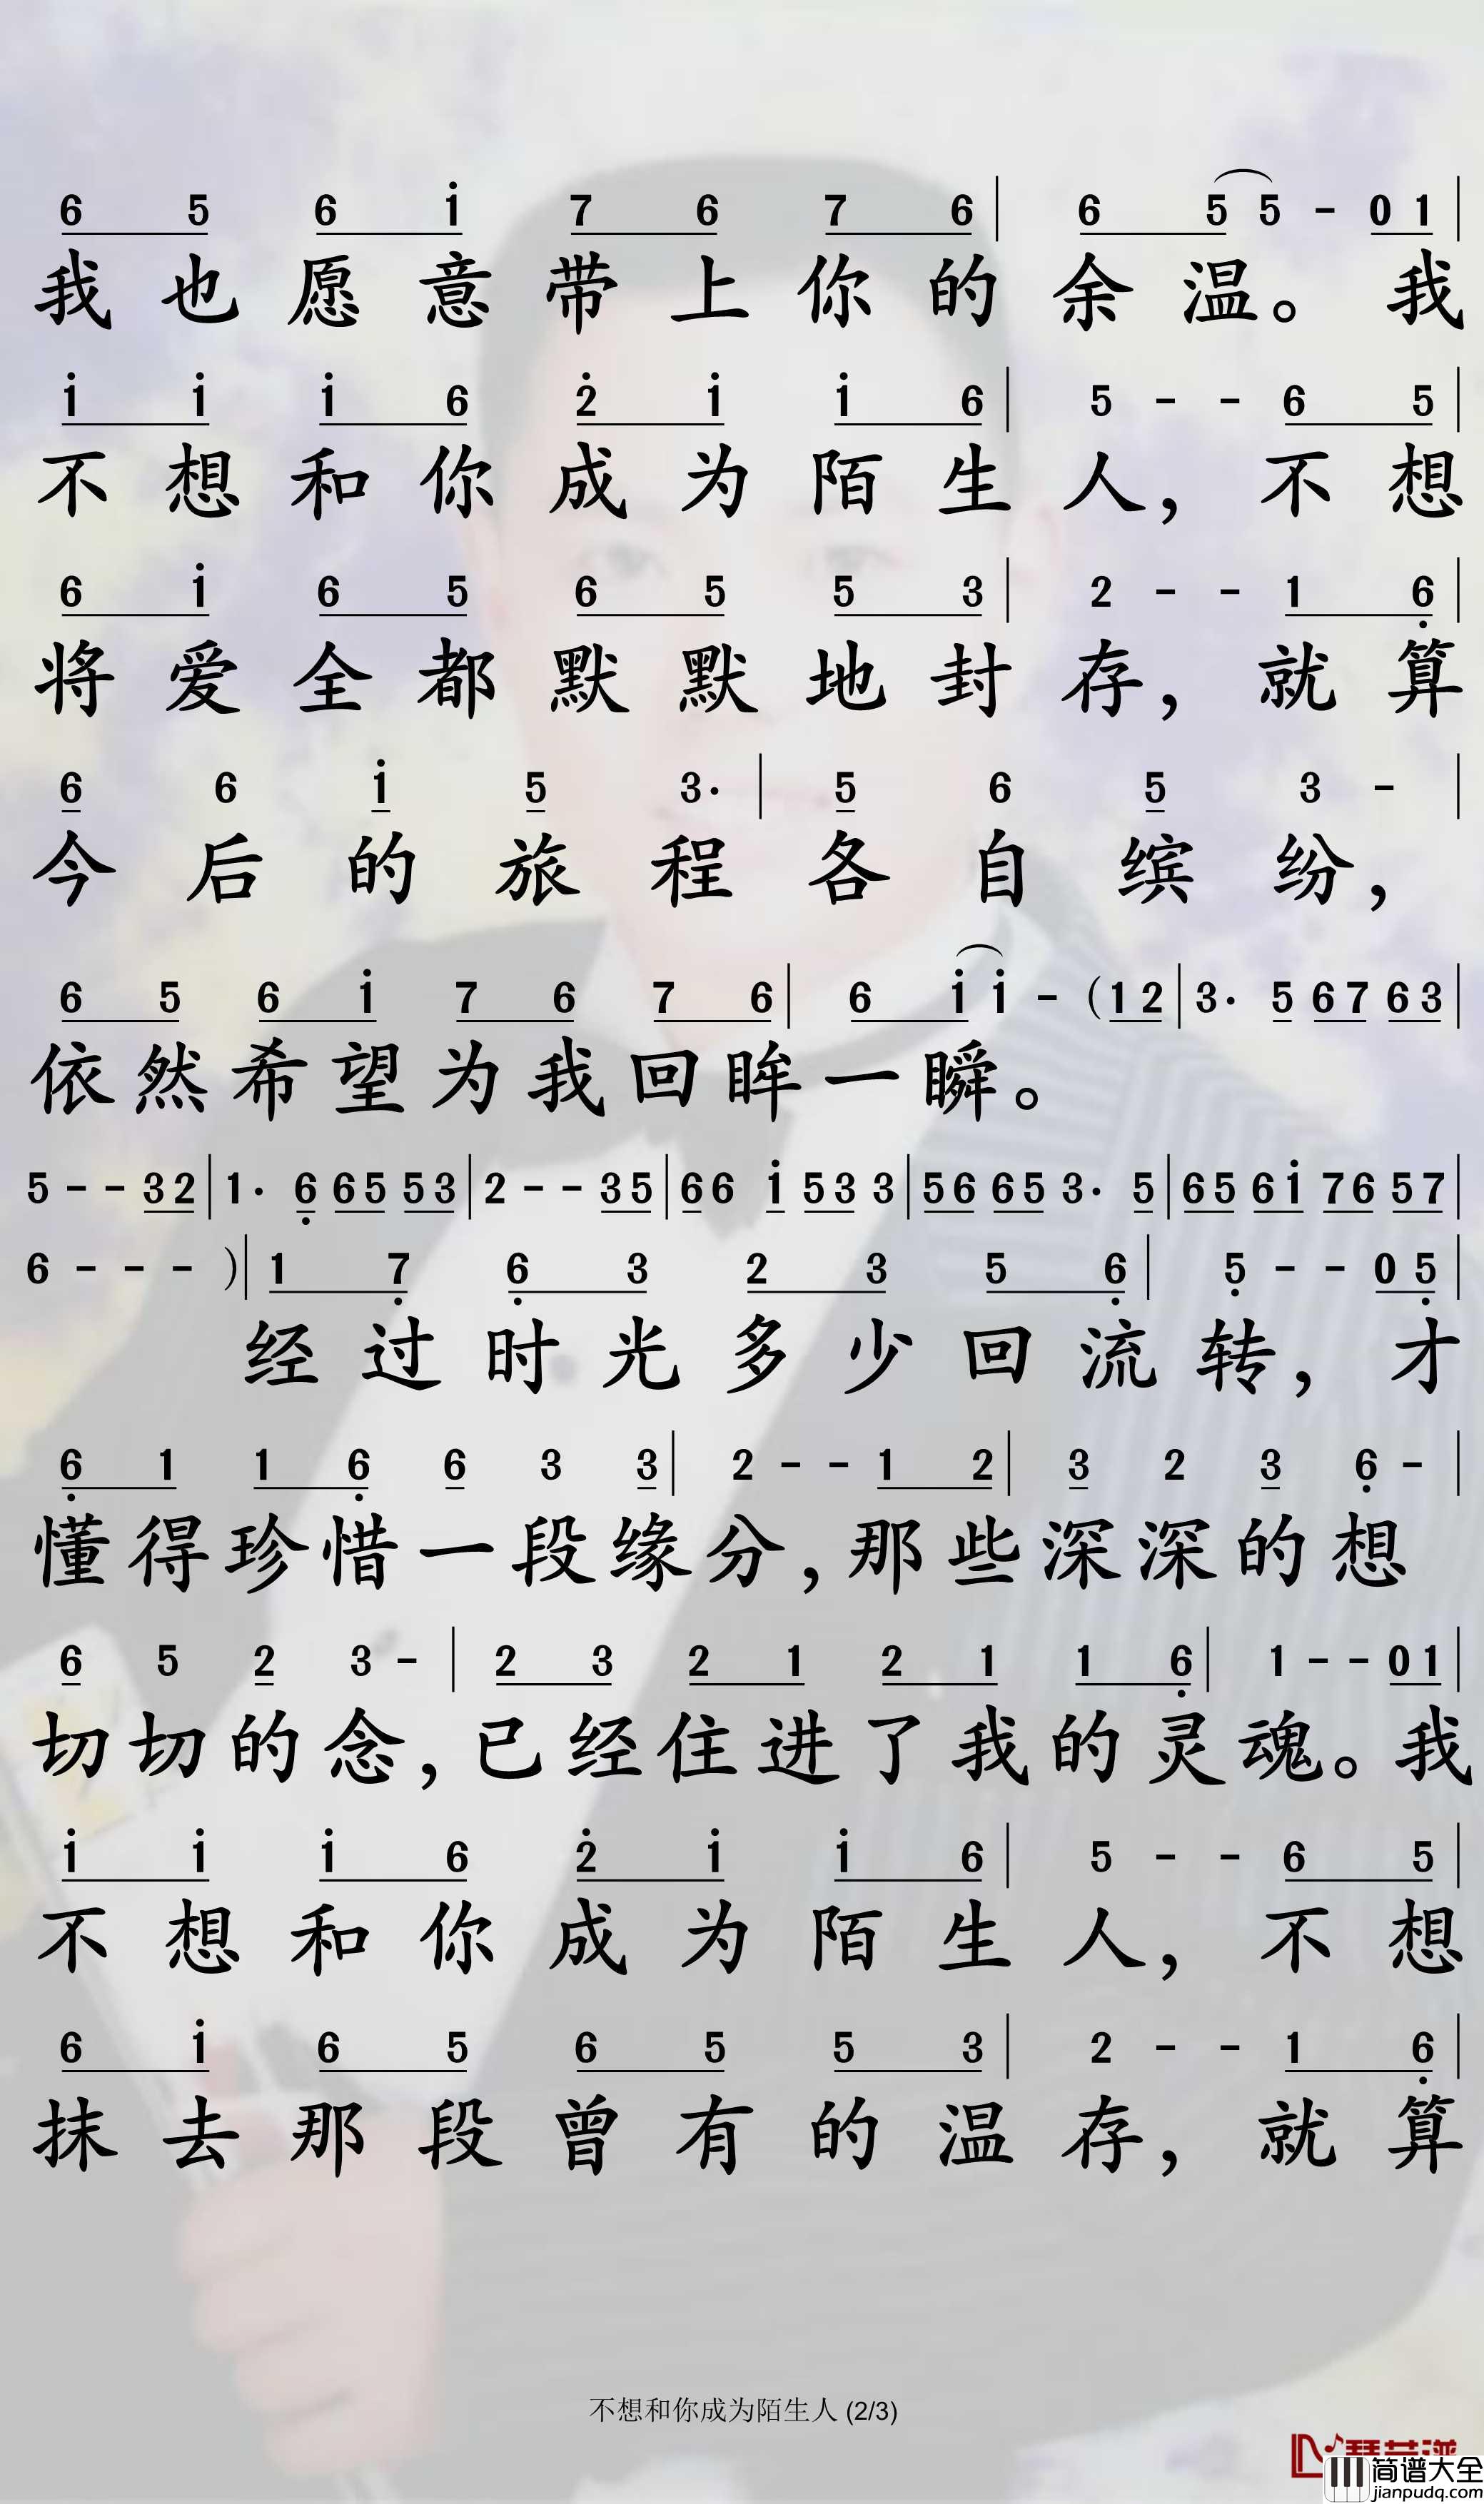 6 5 6 i 7 6 7 6 | 6 5 5 - 0 1 |
我也愿意带上你的余温。我
i i i 6 2̇ i i 6 | 5 - - 6 5 |
不想和你成为陌生人，不想
6 i 6 5 6 5 5 3 | 2 - - 1 6̣ |
将爱全都默默地封存，就算
6 6 i 5 3· | 5 6 5 3 - |
今后的旅程各自缤纷，
6 5 6 i 7 6 7 6 | 6 i i - (1 2 | 3· 5 6 7 6 3 |
依然希望为我回眸一瞬。
5 - - 3 2 | 1· 6̣ 6 5 5 3 | 2 - - 3 5 | 6 6 i 5 3 3 | 5 6 6 5 3· 5 | 6 5 6 i 7 6 5 7 |
6 - - - ) | 1 7̣ 6̣ 3 2 3 5 6̣ | 5̣ - - 0 5̣ |
经过时光多少回流转，才
6̣ 1 1 6̣ 6 3 3 | 2 - - 1 2 | 3 2 3 6̣ - |
懂得珍惜一段缘分，那些深深的想
6 5 2 3 - | 2 3 2 1 2 1 1 6̣ | 1 - - 0 1 |
切切的念，已经住进了我的灵魂。我
i i i 6 2̇ i i 6 | 5 - - 6 5 |
不想和你成为陌生人，不想
6 i 6 5 6 5 5 3 | 2 - - 1 6̣ |
抹去那段曾有的温存，就算
不想和你成为陌生人 (2/3)
简谱大全
jianpudq.com